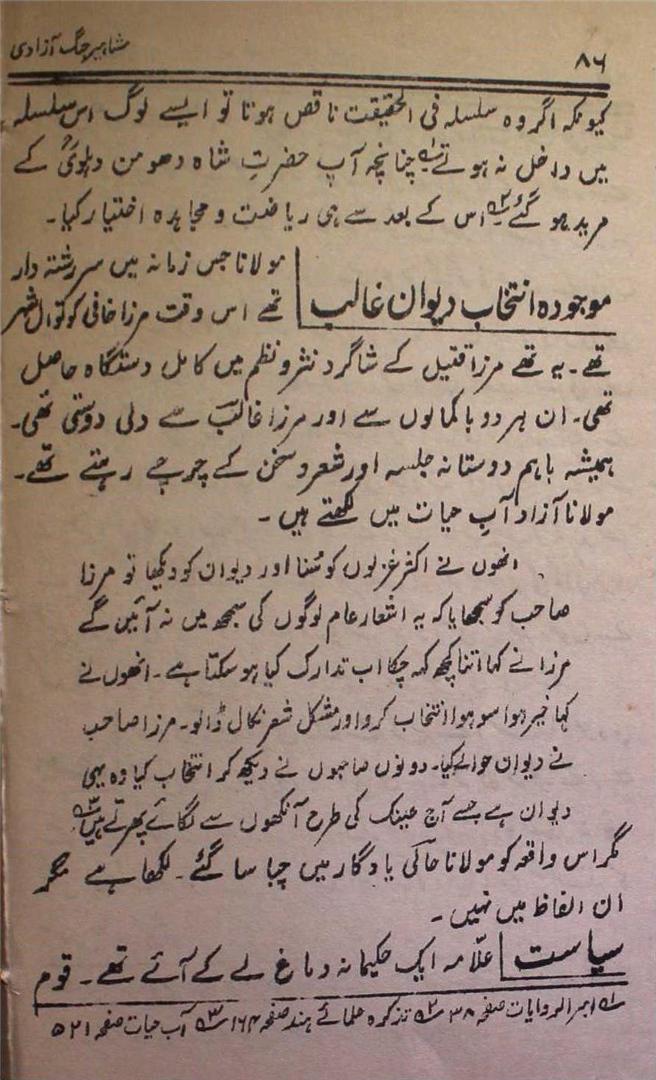 ۸۶
مشاہیر جنگ آزادی
کیونکہ اگر وہ سلسلہ فی الحقیقت ناقص ہوتا تو ایسے لوگ اس سلسلہ
میں داخل نہ ہوتے ۱؎ چنانچہ آپ حضرت شاہ دھومن دہلویؒ کے
مرید ہو گئے ۲؎ اس کے بعد سے ہی ریاضت و مجاہدہ اختیار کیا۔
موجودہ انتخاب دیوان غالب
مولانا جس زمانہ میں سررشتہ دار
تھے اس وقت مرزا خانی کوتوال شہر
تھے۔ یہ تھے مرزا قتیل کے شاگرد نثر و نظم میں کامل دستگاہ حاصل
تھی۔ ان ہر دو باکمالوں سے اور مرزا غالب سے دلی دوستی تھی۔
ہمیشہ باہم دوستانہ جلسہ اور شعر و سخن کے چرچے رہتے تھے۔
مولانا آزاد آبِ حیات میں لکھتے ہیں۔
انھوں نے اکثر غزلوں کو سُنا اور دیوان کو دیکھا تو مرزا
صاحب کو سمجھایا کہ یہ اشعار عام لوگوں کی سمجھ میں نہ آئیں گے
مرزا نے کہا اتنا کچھ کہہ چکا اب تدارک کیا ہو سکتا ہے۔ انھوں نے
کہا خیر ہوا سو ہوا انتخاب کرو اور مشکل شعر نکال ڈالو۔ مرزا صاحب
نے دیوان حوالے کیا۔ دونوں صاحبوں نے دیکھ کر انتخاب کیا وہ یہی
دیوان ہے جسے آج عینک کی طرح آنکھوں سے لگائے پھرتے ہیں ۳؎
گر اس واقعہ کو مولانا حالی یادگار میں چبا سا گئے۔ لکھا ہے مگر
ان الفاظ میں نہیں۔
سیاست
علّامہ ایک حکیمانہ دماغ لے کے آئے تھے۔ قوم
۱؎ امیر الروایات صفحہ ۳۸ ۲؎ تذکرہ علمائے ہند صفحہ ۱۶۴ ۳؎ آب حیات صفحہ ۵۲۱